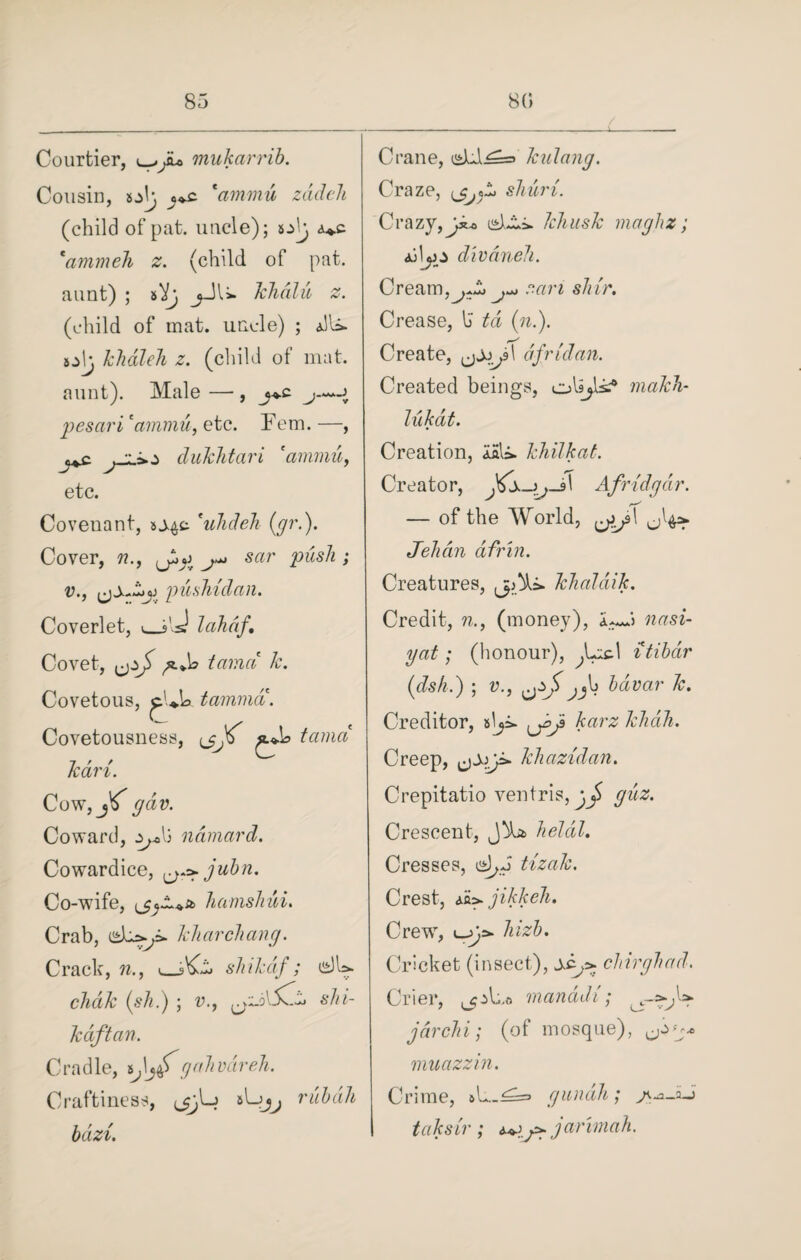 85
Courtier, مقرب mukarrib.
Cousin, عمو زاده 'ammú zádeh
(child of pat. uncle); عمه زاده
'ammeh z. (child of pat.
aunt) ; خالو زلاه khálú z.
(child of mat. uncle) ; خاله
زاده kháleh z. (child of mat.
aunt). Male — , پسر عمو
pesari 'ammú, etc. Fem. —,
دختر عمو dukhtari 'ammú,
etc.
Covenant, عهده 'uhdeh (gr.).
Cover, n., سر پوش sar púsh ;
v., پوشیدن púshídan.
Coverlet, لحاف laháf.
Covet, طمع کردن tama' k.
Covetous, طماع tammá'.
Covetousness, طمع کاری tama'
kárí.
Cow, گاو gáv.
Coward, نامرد námard.
Cowardice, جبن jubn.
Co-wife, همشوی hamshúi.
Crab, خرچنگ kharchang.
Crack, n., شکاف shikáf ; چاك
chák (sh.) ; v., شکافتن shi-
káftan.
Cradle, گهواره gahváreh.
Craftiness, روباه بازی rúbáh
bází.
86
Crane, کلنگ kulang.
Craze, شوری shúrí.
Crazy, خشك مغز khushk maghz ;
دیوانه díváneh.
Cream, سر شیر sari shír.
Crease, تا tá (n.).
Create, آفریدن áfrídan.
Created beings, مخلوقات makh-
lúkát.
Creation, خلقت khilkat.
Creator, آفریدگار Afrídgár.
— of the World, جهان آفرین
Jehán áfrín.
Creatures, خلایق khaláik.
Credit, n., (money), نسیة nasi-
yat ; (honour), اعتبار i'tibár
(dsh.) ; v., باور کردن bávar k.
Creditor, قرض خواه karz kháh.
Creep, خزیدن khazídan.
Crepitatio ventris, گوز gúz.
Crescent, هلال helál.
Cresses, تیزك tízak.
Crest, جقه jikkeh.
Crew, حزب hizb.
Cricket (insect), چرغد chirghad.
Crier, منادی manádí ; جارچی
járchi ; (of mosque), موذن
muazzin.
Crime, گناه gunáh ; تقصیر
taksír ; جریمه jarímah.